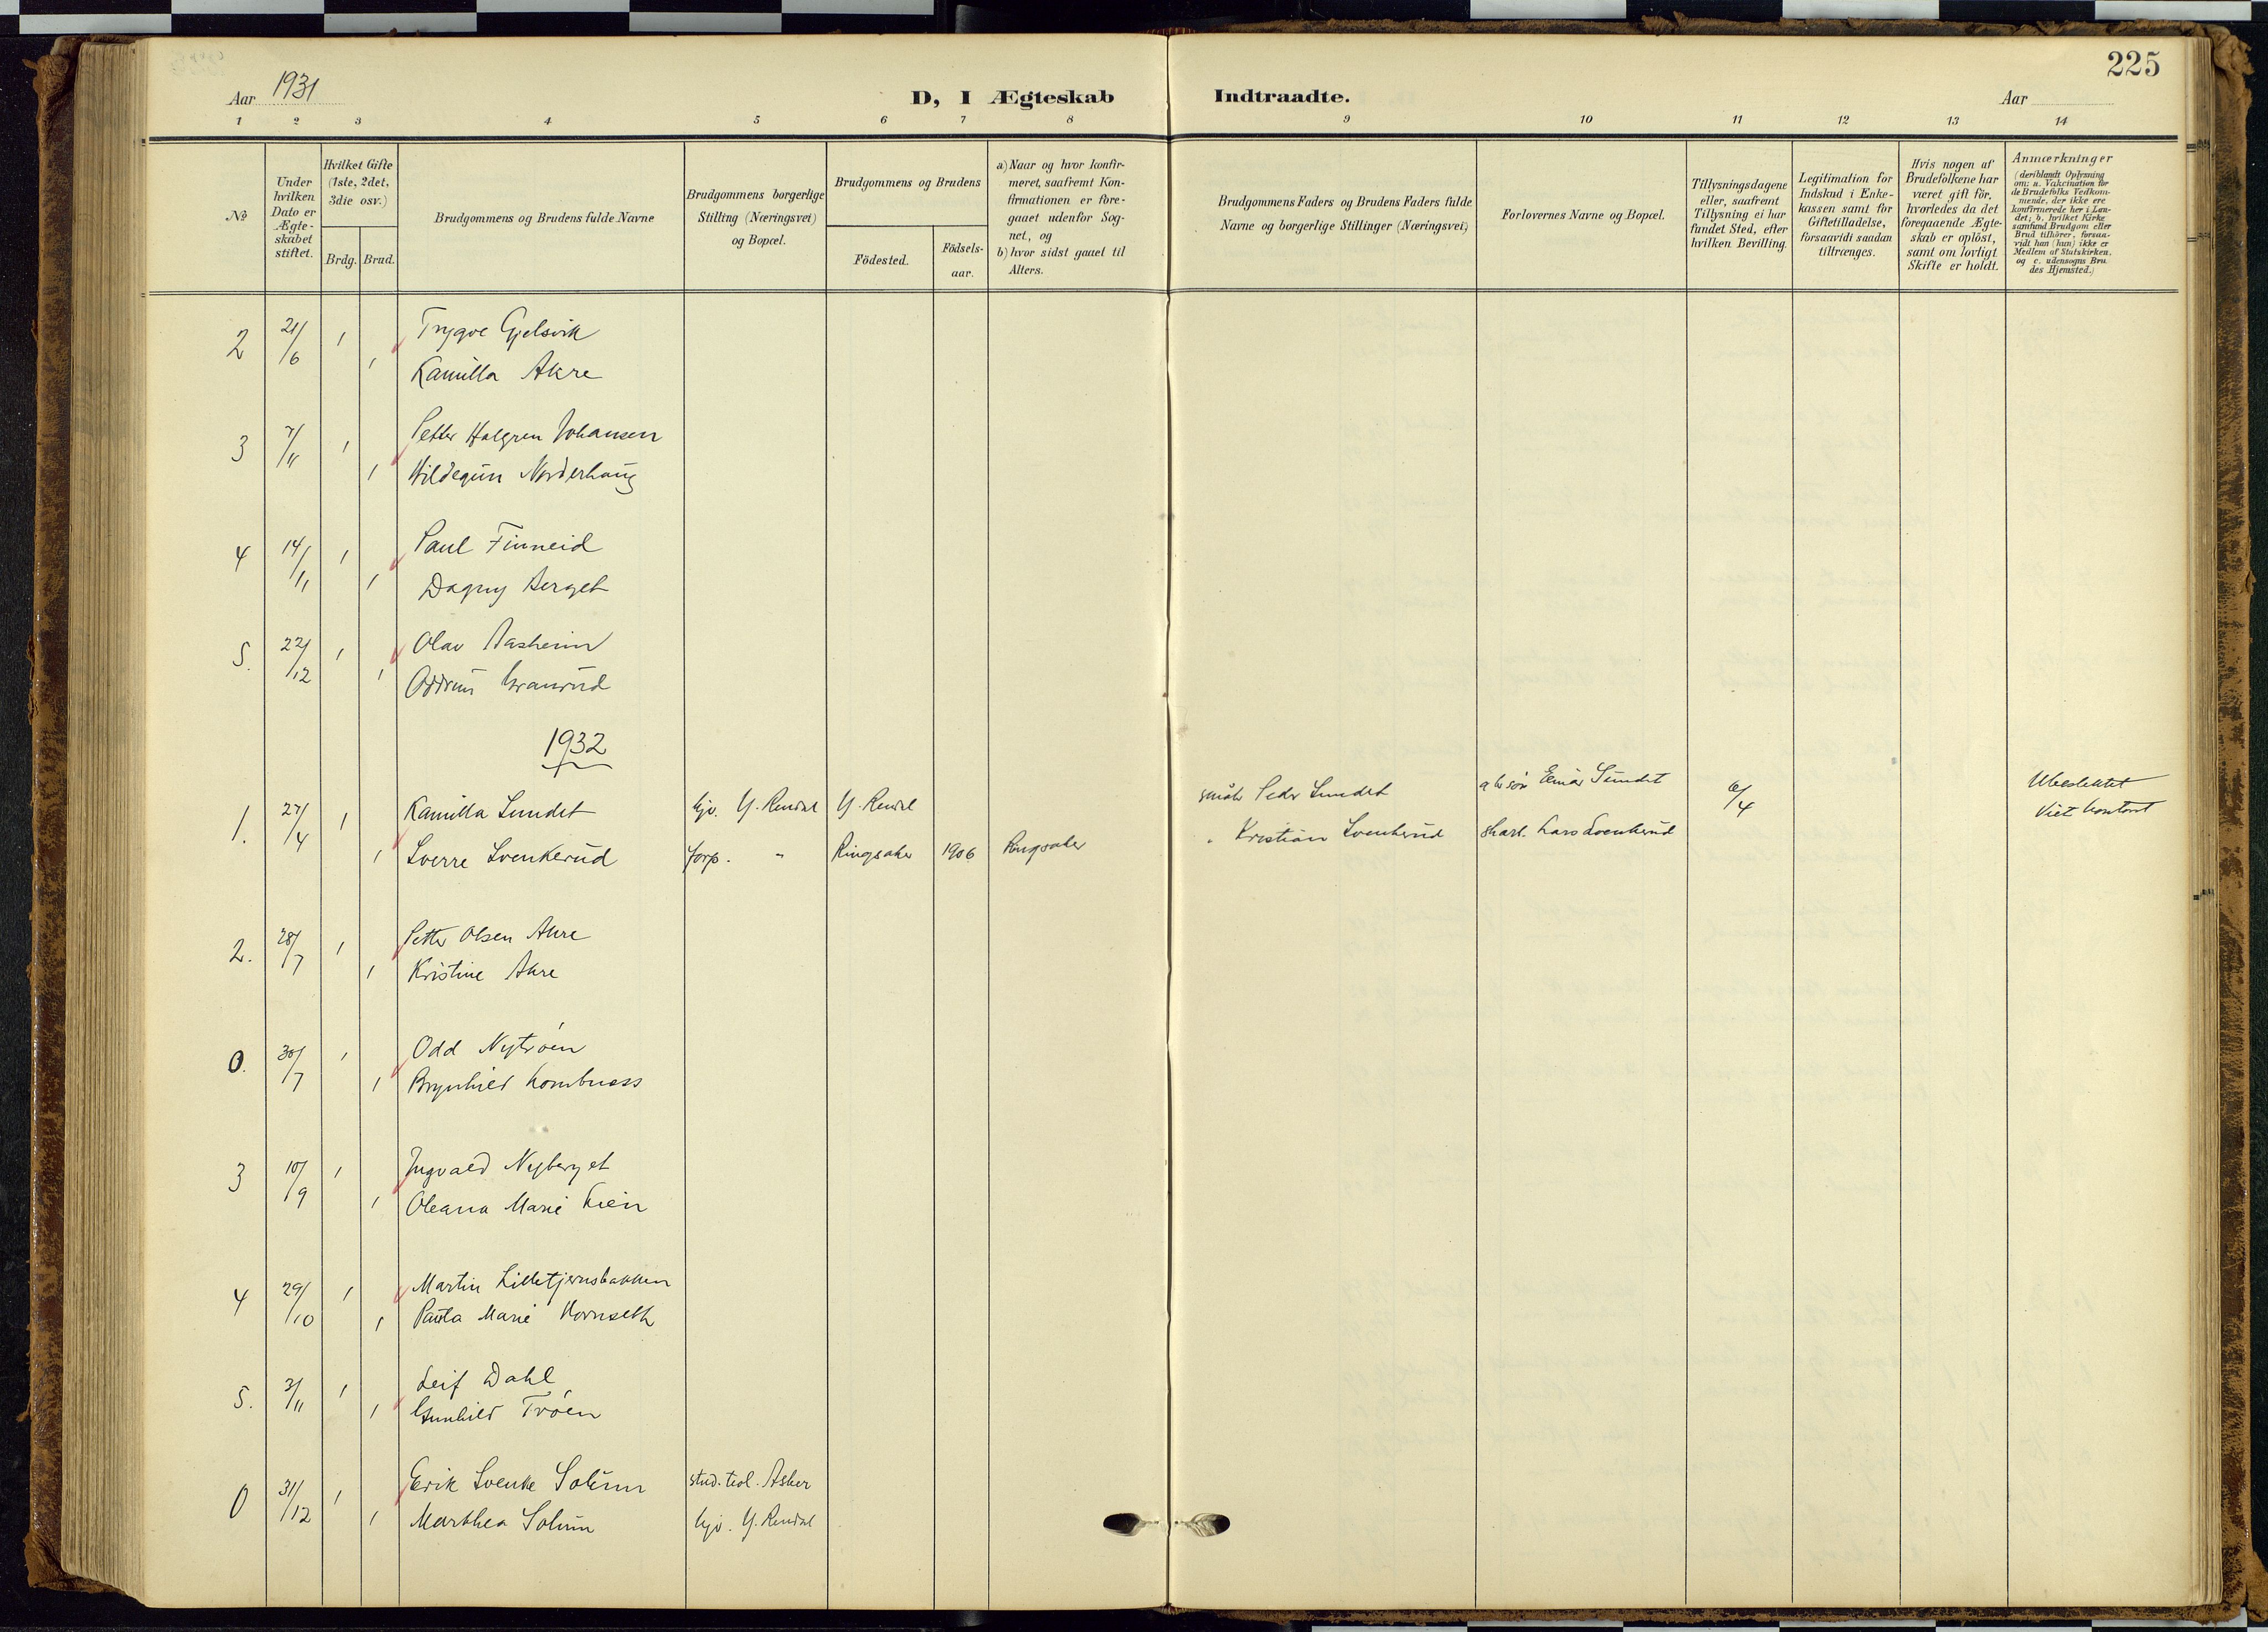 225
Aar 1931
D, I Ægteskab Indtraadte.
Aar
1 2 3 4 5 6 7 8 9 10 11 12 13 14
No
Under
hvilken
Dato er
Ægte-
skabet
stiftet.
Hvilket Gifte
(1ste, 2det,
3die osv.)
Brdg. Brud.
Brudgommens og Brudens fulde Navne
Brudgommens borgerlige
Stilling (Næringsvei)
og Bopæl.
Brudgommens og Brudens
Födested.
Födsels-
aar.
a) Naar og hvor konfir-
meret, saafremt Kon-
firmationen er fore-
gaaet udenfor Sog-
net, og
b) hvor sidst gaaet til
Alters.
Brudgommens Faders og Brudens Faders fulde
Navne og borgerlige Stillinger (Næringsvei)
Forlovernes Navne og Bopæl.
Tillysningsdagene
eller, saafremt
Tillysning ei har
fundet Sted, efter
hvilken Bevilling.
Legitimation for
Indskud i Enke-
kassen samt for
Giftetilladelse,
forsaavidt saadan
tiltrænges.
Hvis nogen af
Brudefolkene har
været gift för,
hvorledes da det
foregaaende Ægte-
skab er oplöst,
samt om lovligt
Skifte er holdt.
Anmærkninger
(deriblandt Oplysning
om: a. Vakcination for
de Brudefolks Vedkom-
mende, der ikke ere
konfirmerede her i Lan-
det; b. hvilket Kirke
samfund Brudgom eller
Brud tilhörer, forsaa-
vidt han (hun) ikke er
Medlem af Statskirken,
og c. udensogns Bru
des Hjemsted.)
2 21/6 1 Trygve Gjelsvik
1 Kamilla Akre
3 7/11 1 Petter Halgren Johansen
1 Hildegun Norderhaug
4 14/11 1 Paul Finneid
1 Dagny Berget
5. 22/12 1 Olav Aasheim
1 Oddrun Granrud
1932
1. 27/4 1 Kamilla Sundet hjv. Y. Rendal Y. Rendal småbr Peder Sundet Einar Sundet 6/4 Ubeslektet
1 Sverre Svenkerud forp. " Ringsaker 1906 Ringsaker " Kristian Svenkerud Lars Svenkerud Viet kontoret
2. 28/7 1 Petter Olsen Akre
1 Kristine Akre
0. 30/7 1 Odd Nytrøen
1 Brynhild Hornbuess
3 10/9 1 Ingvald Nyberget
1 Oleana Marie Lien
4 29/10 1 Martin Lilletjernsbakken
1 Paula Marie Hornseth
5. 3/11 1 Leif Dahl
1 Gunhild Trøen
0 31/12 1 Erik Svenke Solum stud. teol. Asker
1 Marthea Solum hjv. Y. Rendal